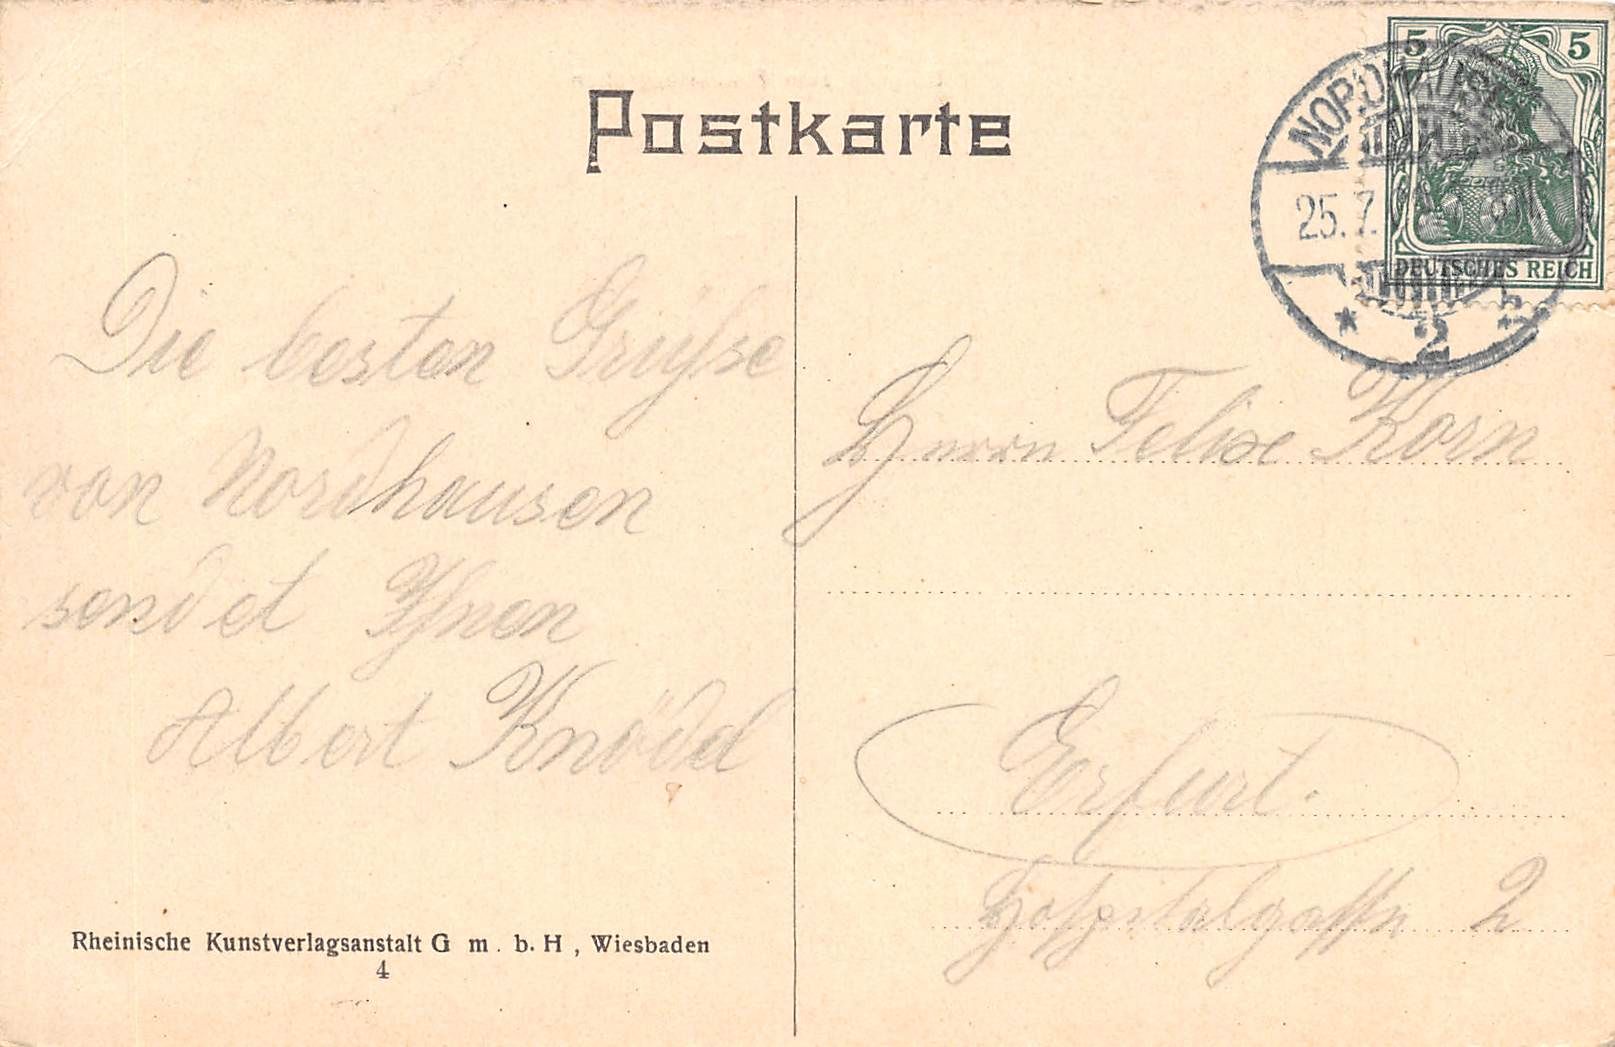 Postkarte
5 5
DEUTSCHES REICH
NORDHAUSEN
25.7.
* 2 *
Die besten Grüsse
von Nordhausen
sendet Ihnen
Albert
Herrn Felix Korn
Erfurt.
Hospitalgasse 2
Rheinische Kunstverlagsanstalt G m. b. H, Wiesbaden
4